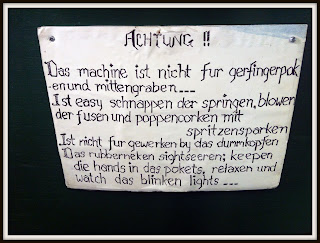 ACHTUNG !!
Das machine ist nicht fur gerfingerpok
en und mittengraben...
Ist easy schnappen der springen, blowen
der fusen und poppencorken mit
spritzensparken
Ist nicht fur gewerken by das dummkopfen
Das rubberneken sightseeren; keepen
die hands in das pokets, relaxen und
watch das blinken lights ...